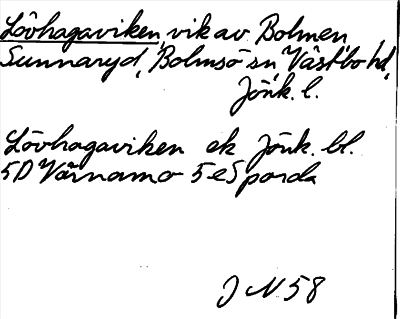 Lövhagaviken, vik av Bolmen,
Sunnaryd, Bolmsö sn, Västbo hd,
Jönk. l.
Lövhagaviken ek Jönk. bl.
5D Värnamo 5 e Sporda
J N 58